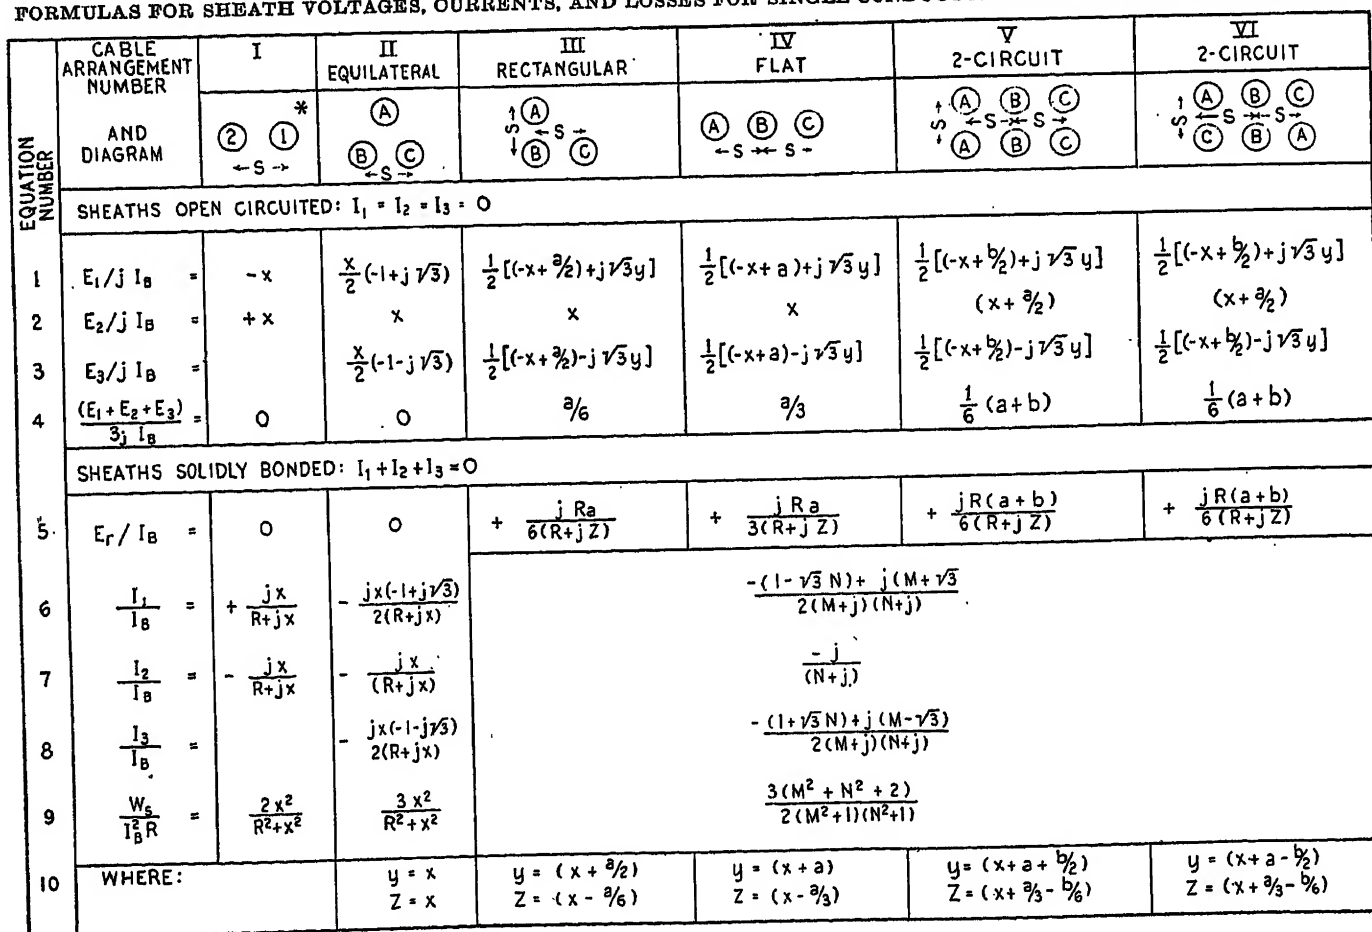 FORMULAS FOR SHEATH VOLTAGES, CURRENTS, AND LOSSES FOR SINGLE
EQUATION NUMBER
CABLE ARRANGEMENT NUMBER AND DIAGRAM | I | II EQUILATERAL | III RECTANGULAR | IV FLAT | V 2-CIRCUIT | VI 2-CIRCUIT
* 2 1 ←S→ | A B C ←S→ | A B C S ←S→ | A B C ←S→←S→ | A B C S ←S→←S→ A B C | A B C S ←S→←S→ C B A
SHEATHS OPEN CIRCUITED: I₁ = I₂ = I₃ = 0
1 | E₁/j I_B = | -x | x/2 (-1+j√3) | 1/2[(-x+a/2)+j√3y] | 1/2[(-x+a)+j√3y] | 1/2[(-x+b/2)+j√3y] | 1/2[(-x+b/2)+j√3y]
2 | E₂/j I_B = | +x | x | x | x | (x+a/2) | (x+a/2)
3 | E₃/j I_B = | x/2 (-1-j√3) | 1/2[(-x+a/2)-j√3y] | 1/2[(-x+a)-j√3y] | 1/2[(-x+b/2)-j√3y] | 1/2[(-x+b/2)-j√3y]
4 | (E₁+E₂+E₃)/3j I_B = | 0 | 0 | a/6 | a/3 | 1/6 (a+b) | 1/6 (a+b)
SHEATHS SOLIDLY BONDED: I₁+I₂+I₃=0
5. | E_r / I_B = | 0 | 0 | + j Ra/6(R+jZ) | + j Ra/3(R+jZ) | + jR(a+b)/6(R+jZ) | + jR(a+b)/6(R+jZ)
6 | I₁/I_B = | + jx/R+jx | - jx(-1+j√3)/2(R+jx) | -(1-√3 N)+ j(M+√3/2(M+j)(N+j)
7 | I₂/I_B = | - jx/R+jx | - jx/(R+jx) | -j/(N+j)
8 | I₃/I_B = | - jx(-1-j√3)/2(R+jx) | -(1+√3N)+j(M-√3)/2(M+j)(N+j)
9 | W_S/I_B²R = | 2x²/R²+x² | 3x²/R²+x² | 3(M²+N²+2)/2(M²+1)(N²+1)
10 | WHERE: | y = x | y = (x+a/2) | y = (x+a) | y= (x+a+b/2) | y = (x+a-b/2)
Z = x | Z = (x-a/6) | Z = (x-a/3) | Z=(x+a/3-b/6) | Z = (x+a/3-b/6)